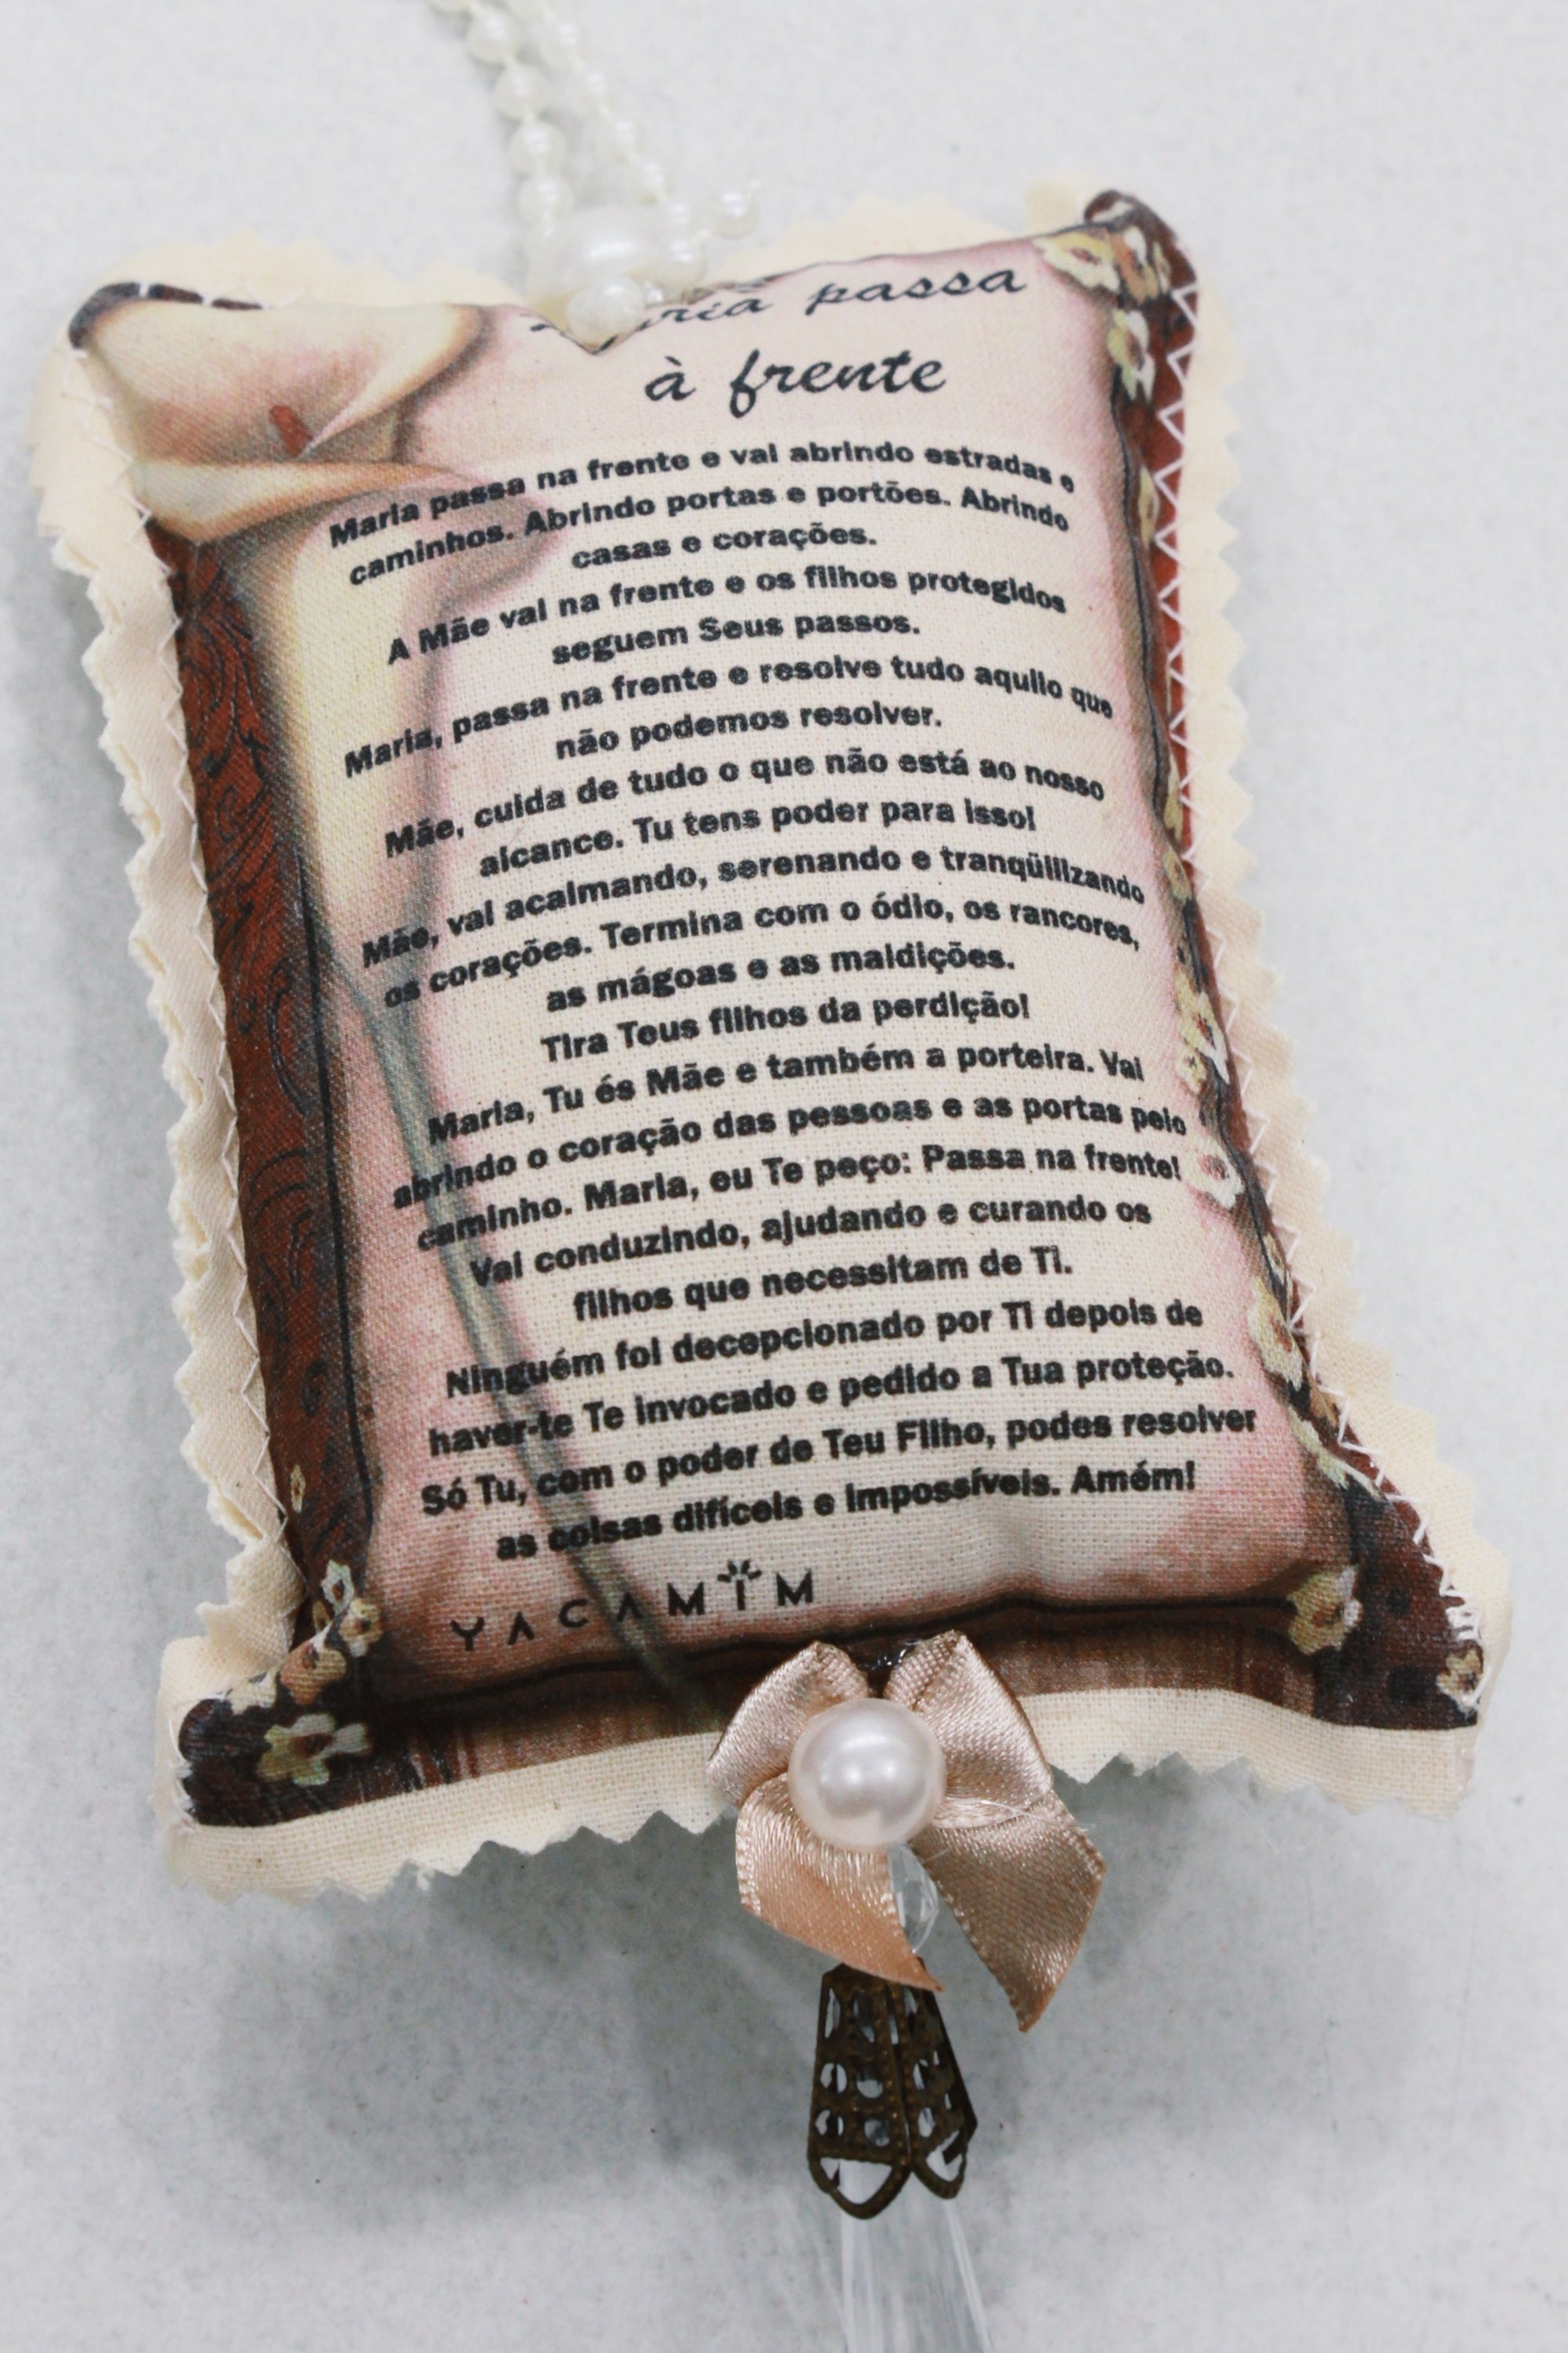 Maria passa
à frente
Maria passa na frente e vai abrindo estradas e
caminhos. Abrindo portas e portões. Abrindo
casas e corações.
A Mãe vai na frente e os filhos protegidos
seguem Seus passos.
Maria, passa na frente e resolve tudo aquilo que
não podemos resolver.
Mãe, cuida de tudo o que não está ao nosso
alcance. Tu tens poder para isso!
Mãe, vai acalmando, serenando e tranqüilizando
os corações. Termina com o ódio, os rancores,
as mágoas e as maldições.
Tira Teus filhos da perdição!
Maria, Tu és Mãe e também a porteira. Vai
abrindo o coração das pessoas e as portas pelo
caminho. Maria, eu Te peço: Passa na frente!
Vai conduzindo, ajudando e curando os
filhos que necessitam de Ti.
Ninguém foi decepcionado por Ti depois de
haver-te Te invocado e pedido a Tua proteção.
Só Tu, com o poder de Teu Filho, podes resolver
as coisas difíceis e impossíveis. Amém!
YACAMIM